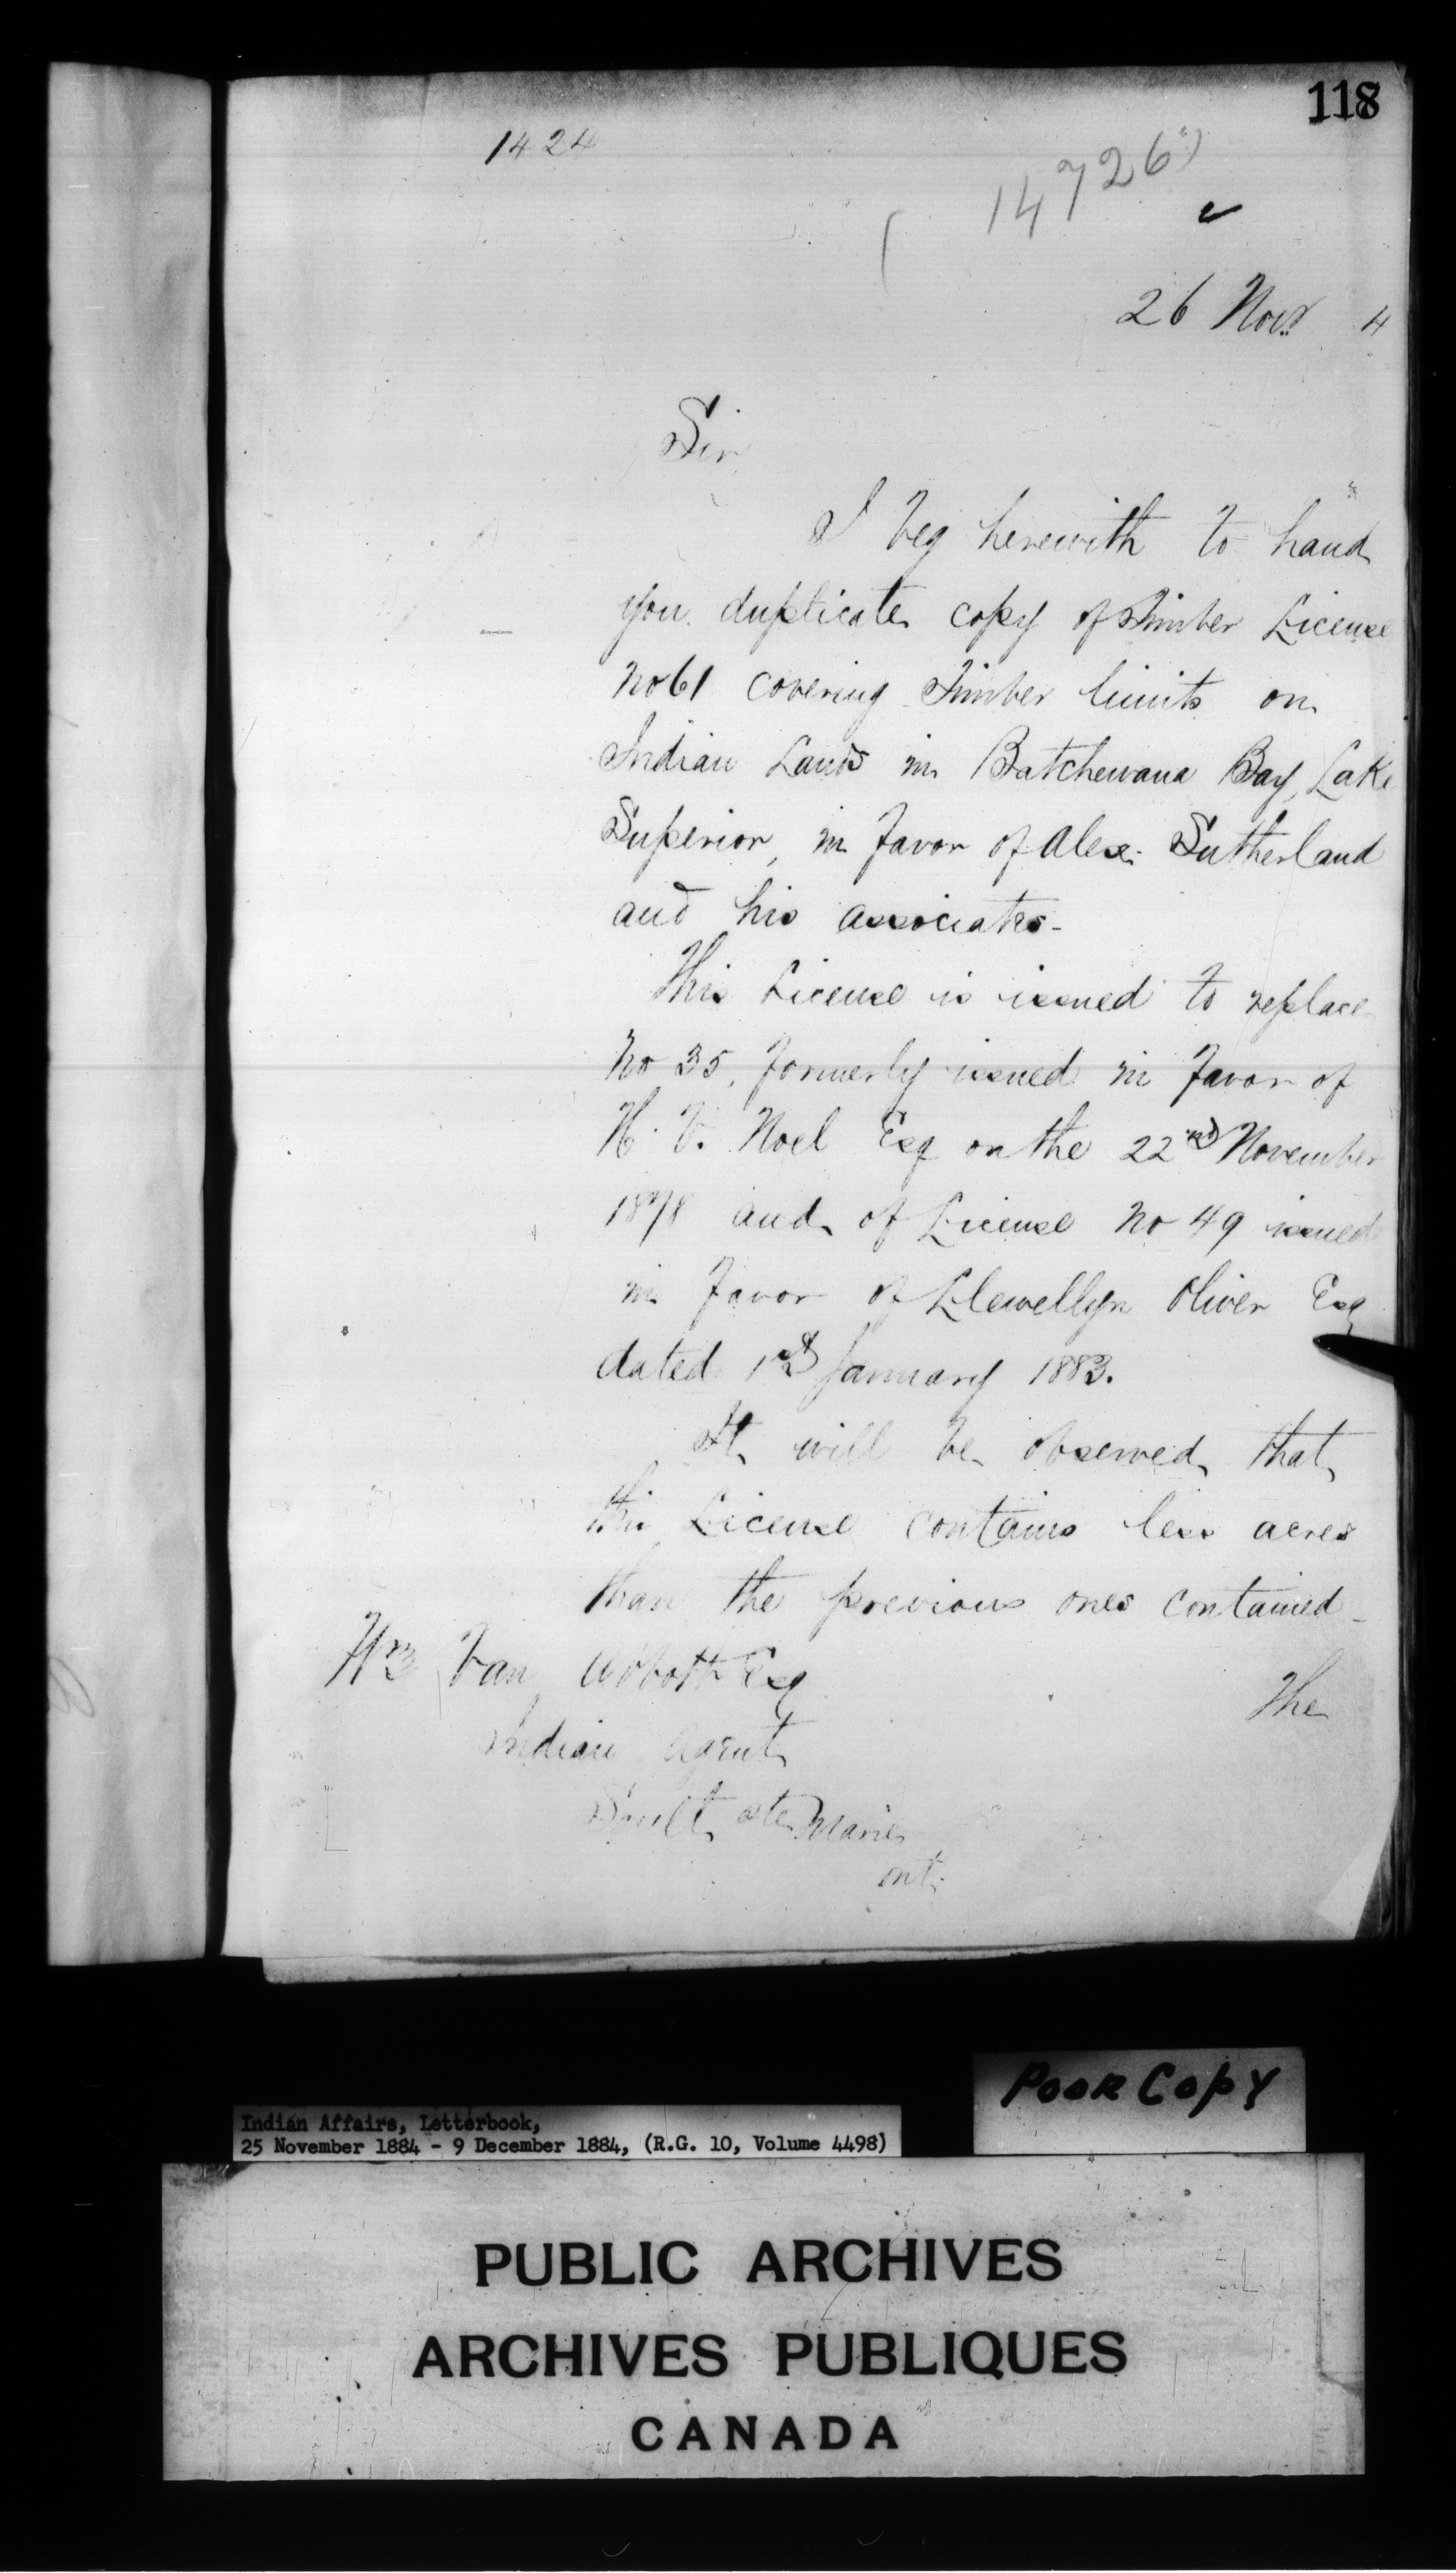 118
1424
14726
26 Novr 4
Sir
I beg herewith to hand
you duplicate copy of Timber License
No 61 covering Timber limits on
Indian Lands in Batchewana Bay, Lake
Superior, in favor of Alex. Sutherland
and his associates-
This License is issued to replace
No 35, formerly issued in favor of
H. V. Noel Esq on the 22nd November
1878 and of License No 49 issued
in favor of Llewellyn Oliver Esq
dated 1st January 1883.
It will be observed that
this License contains less acres
than the previous ones contained-
The
Wm Van Abbott Esq
Indian Agent
Sault Ste Marie
Ont.
Poor Copy
Indian Affairs, Letterbook,
25 November 1884 - 9 December 1884, (R.G. 10, Volume 4498)
PUBLIC ARCHIVES
ARCHIVES PUBLIQUES
CANADA